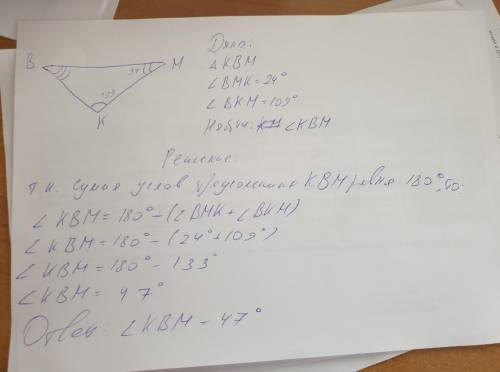 Дано:
B
M
24
△KBM
∠BMK=24°
109
∠BKM=109°
K
Найти: ∠KBM
Решение:
т.к. сумма углов треугольника KBM равна 180°, то.
∠KBM=180°-(∠BMK+∠BKM)
∠KBM=180°-(24°+109°)
∠KBM=180°-133°
∠KBM=47°
Ответ: ∠KBM-47°